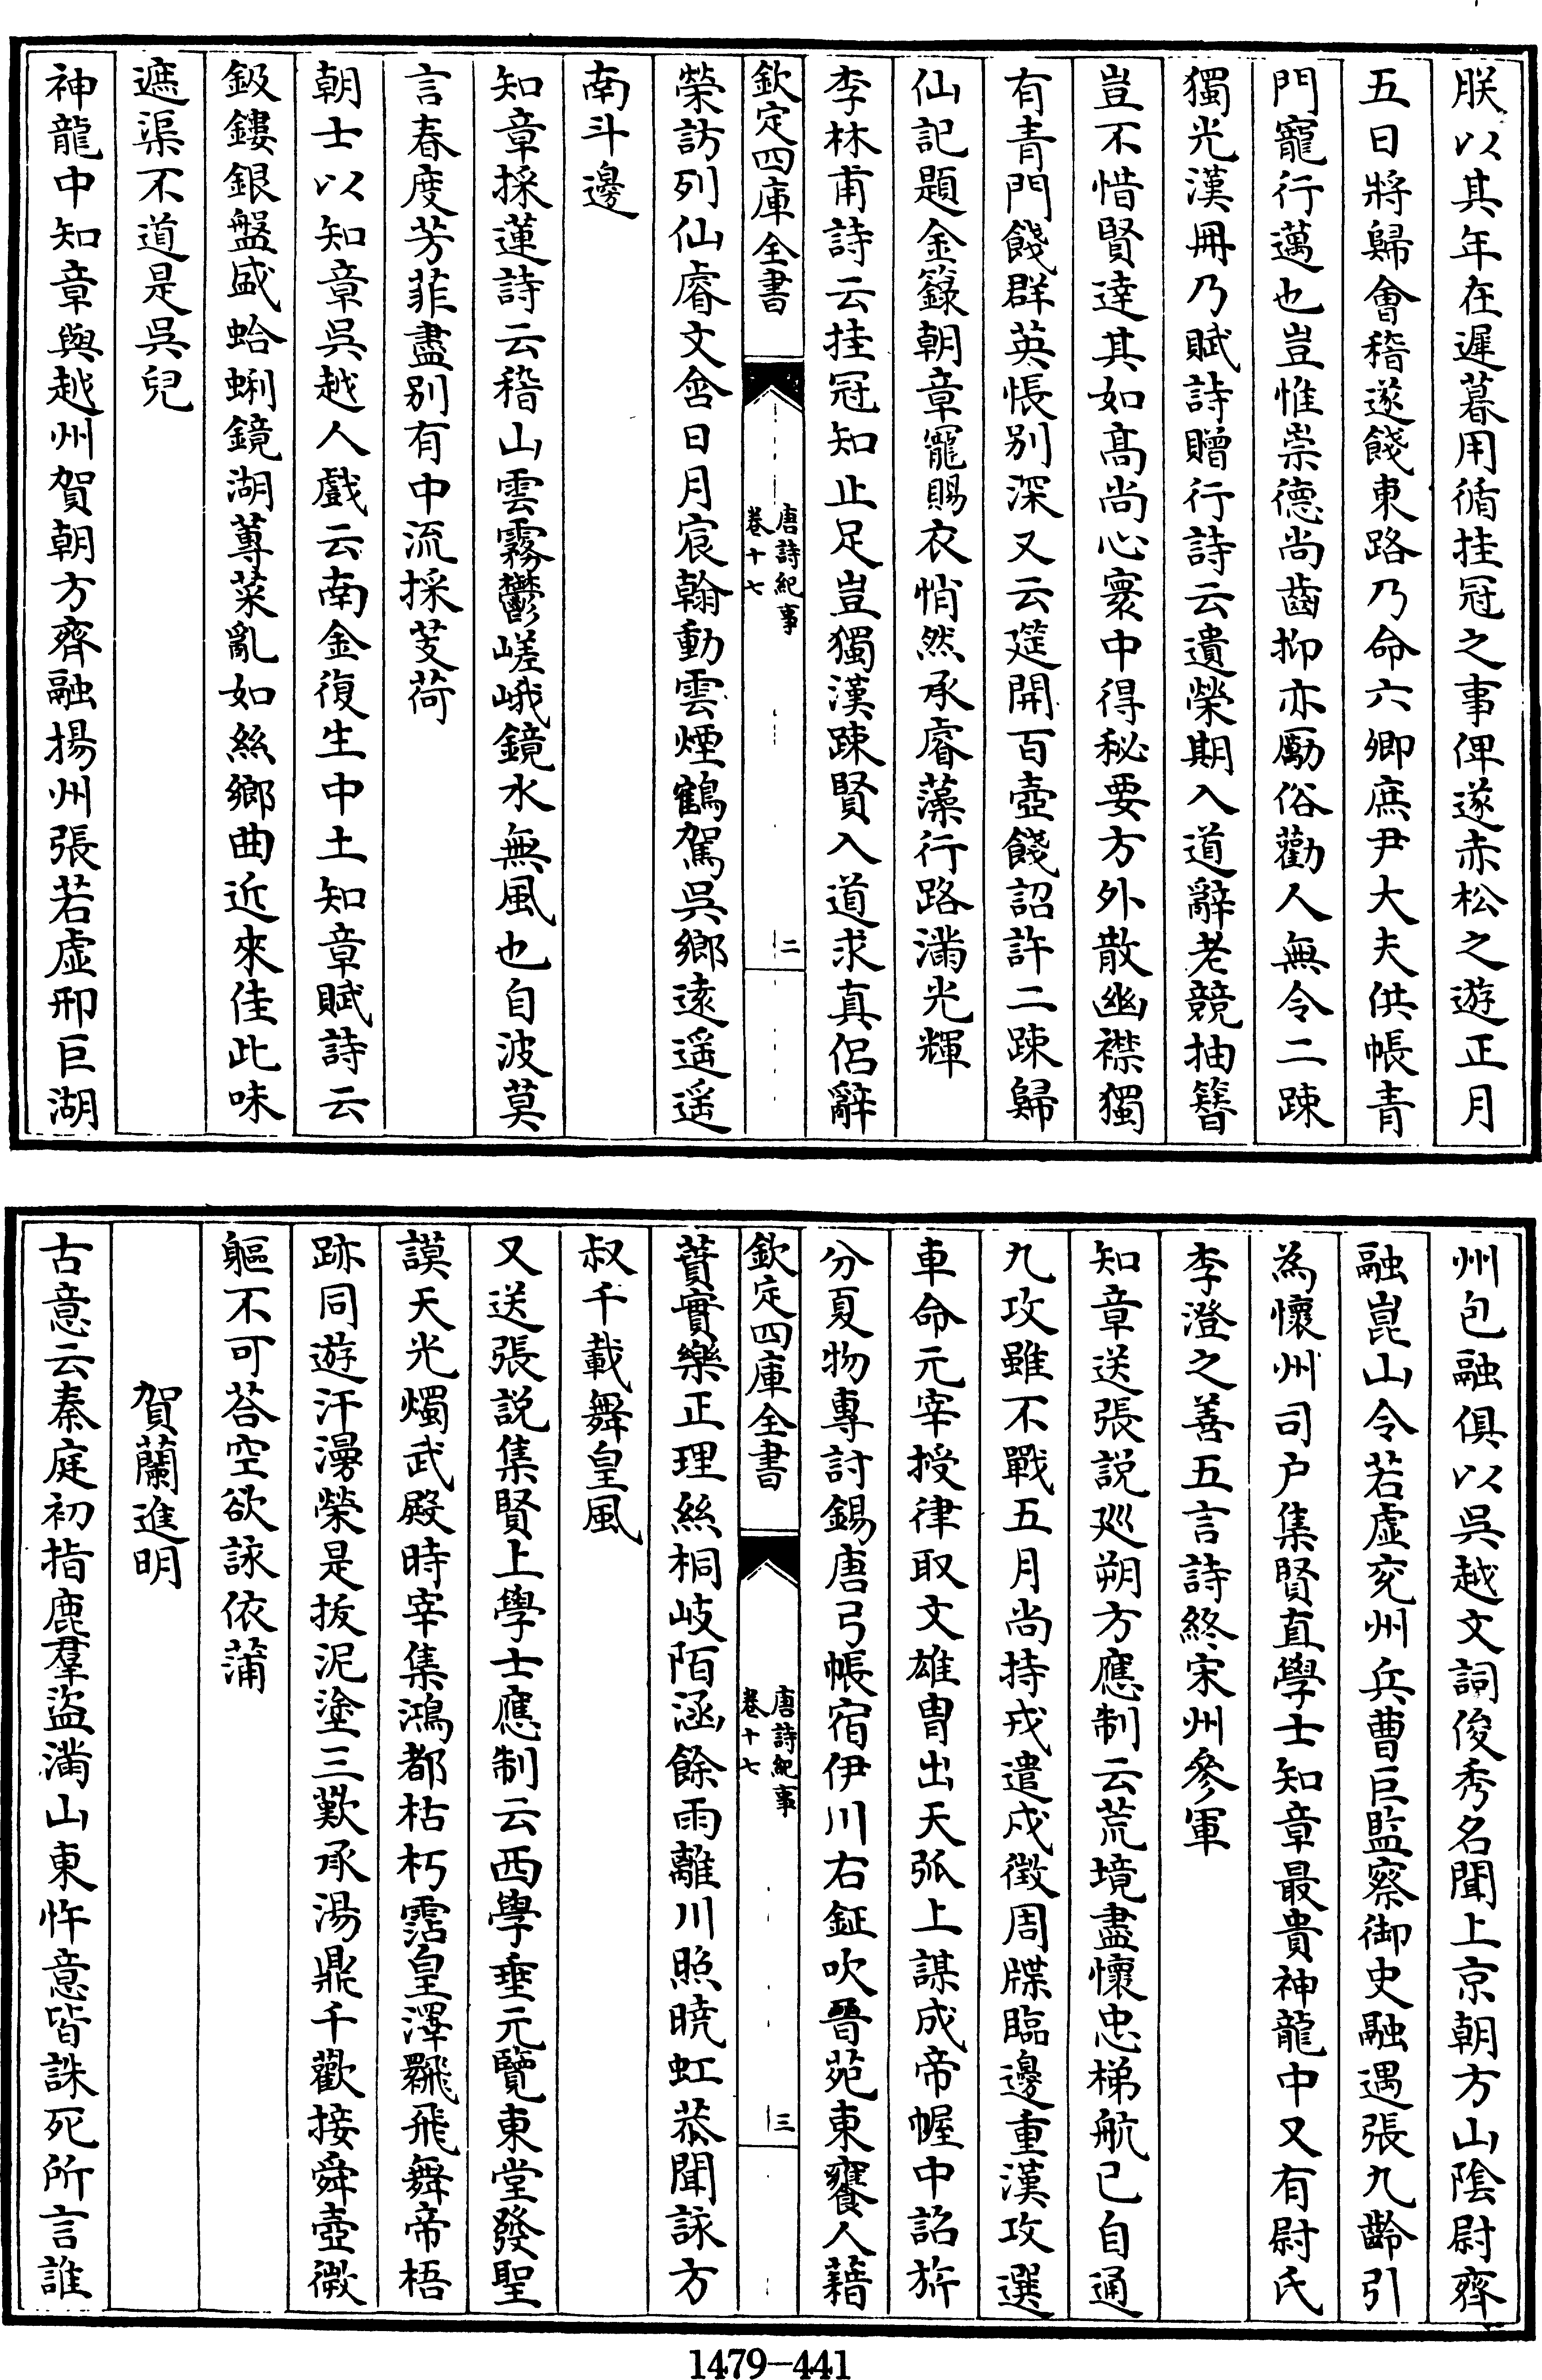 朕以其年在遲暮用循挂冠之事俾遂赤松之遊正月
五日將歸會稽遂餞東路乃命六卿庶尹大夫供帳青
門寵行邁也豈惟崇德尚齒抑亦勵俗勸人無令二踈
獨光漢冊乃賦詩贈行詩云遺榮期入道辭老競抽簪
豈不惜賢達其如髙尚心寰中得秘要方外散幽襟獨
有青門餞群英悵别深又云筵開百壺餞詔許二踈歸
仙記題金籙朝章寵賜衣悄然承睿藻行路滿光輝
李林甫詩云挂冠知止足豈獨漢踈賢入道求真侶辭
欽定四庫全書
唐詩紀事
卷十七
二
榮訪列仙睿文含日月宸翰動雲煙鶴駕吳鄉逺遥遥
南斗邊
知章採蓮詩云稽山雲霧鬱嵯峨鏡水無風也自波莫
言春度芳菲盡别有中流採芰荷
朝士以知章吳越人戲云南金復生中土知章賦詩云
鈒鏤銀盤盛蛤蜊鏡湖蓴菜亂如絲鄉曲近來佳此味
遮渠不道是吳兒
神龍中知章與越州賀朝方齊融揚州張若虚邢巨湖
州包融俱以吳越文詞俊秀名聞上京朝方山陰尉齊
融崑山令若虚兖州兵曹巨監察御史融遇張九齡引
為懷州司户集賢直學士知章最貴神龍中又有尉氏
李澄之善五言詩終宋州參軍
知章送張説廵朔方應制云荒境盡懷忠梯航已自通
九攻雖不戰五月尚持戎遣戍徵周牒臨邊重漢攻選
車命元宰授律取文雄胄出天弧上謀成帝幄中詔旂
分夏物專討錫唐弓帳宿伊川右鉦吹晉苑東饔人藉
欽定四庫全書
唐詩紀事
卷十七
三
蕡實樂正理絲桐岐陌涵餘雨離川照曉虹恭聞詠方
叔千載舞皇風
又送張説集賢上學士應制云西學垂元覽東堂發聖
謨天光燭武殿時宰集鴻都枯朽霑皇澤翾飛舞帝梧
跡同遊汗漫榮是拔泥塗三歎承湯鼎千歡接舜壺微
軀不可荅空欲詠依蒲
賀蘭進明
古意云秦庭初指鹿羣盜滿山東忤意皆誅死所言誰
1479-441